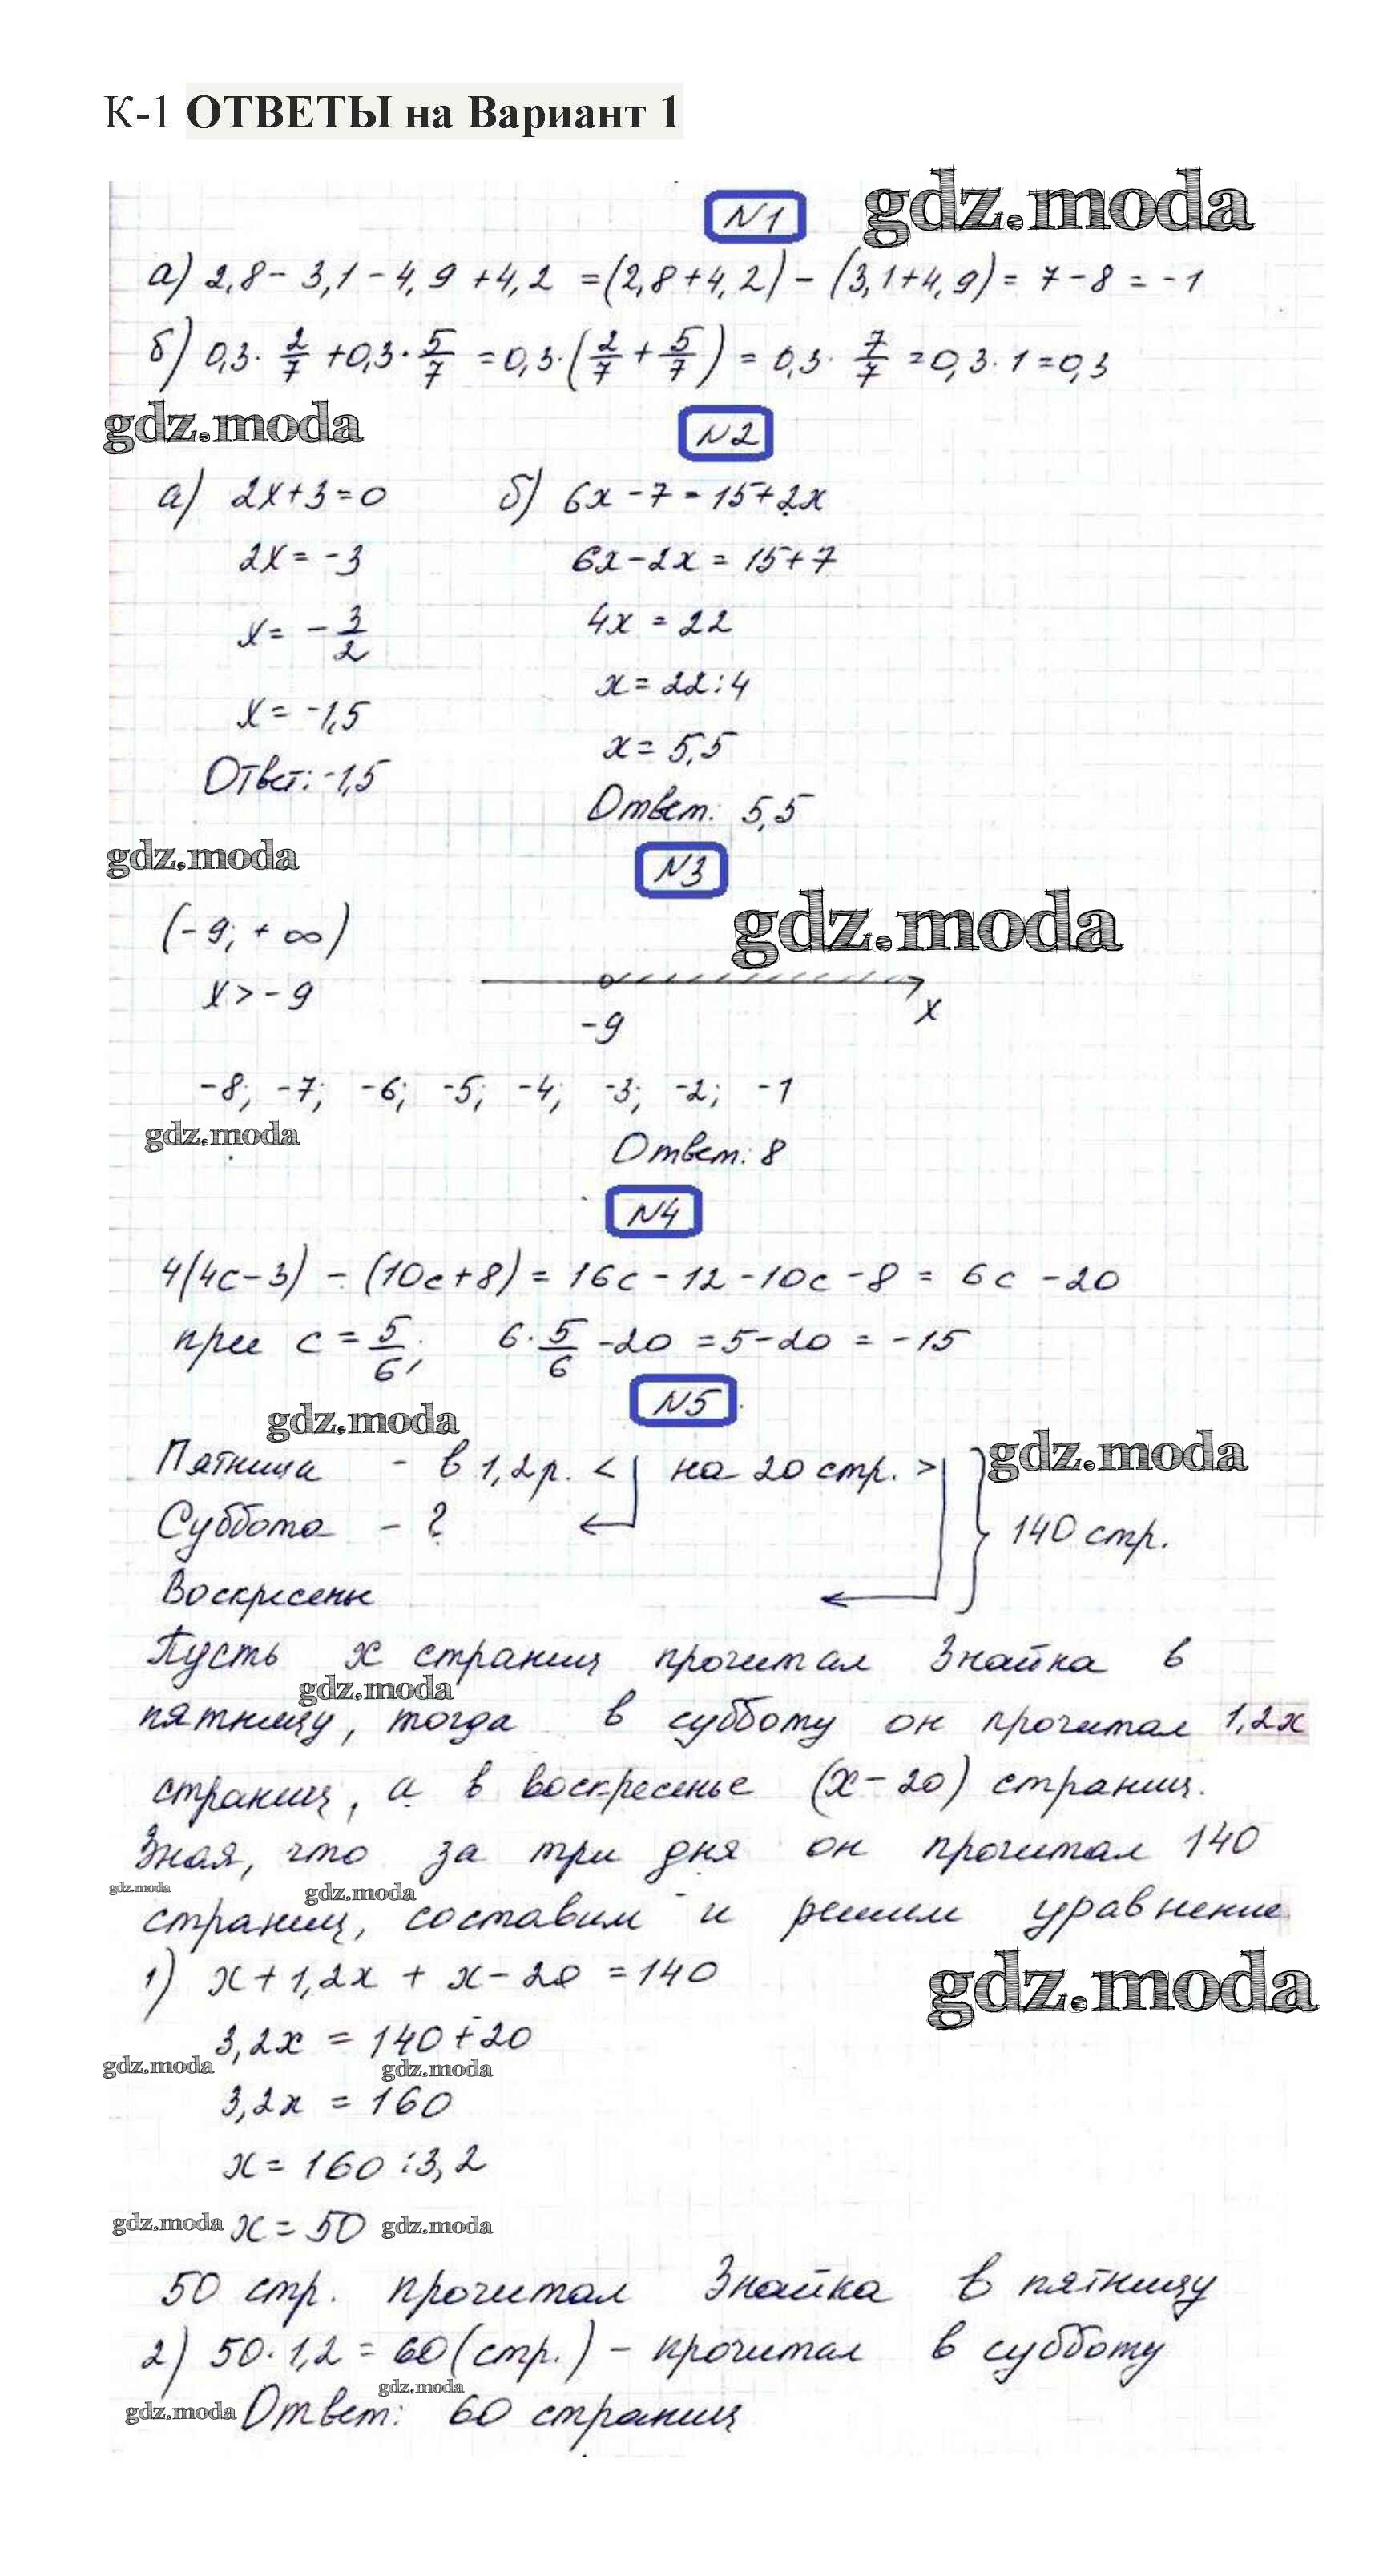 К-1 ОТВЕТЫ на Вариант 1
N1 gdz.moda
а) 2,8 - 3,1 - 4,9 + 4,2 = (2,8 + 4,2) - (3,1 + 4,9) = 7 - 8 = -1
б) 0,3 · 2/7 + 0,3 · 5/7 = 0,3 · (2/7 + 5/7) = 0,3 · 7/7 = 0,3 · 1 = 0,3
gdz.moda N2
а) 2x + 3 = 0 б) 6x - 7 = 15 + 2x
2x = -3 6x - 2x = 15 + 7
x = -3/2 4x = 22
x = 22 : 4
x = -1,5 x = 5,5
Ответ: -1,5 Ответ: 5,5
gdz.moda N3
(-9; +∞) gdz.moda
x > -9 -9 x
-8; -7; -6; -5; -4; -3; -2; -1
gdz.moda Ответ: 8
N4
4(4c - 3) - (10c + 8) = 16c - 12 - 10c - 8 = 6c - 20
при c = 5/6; 6 · 5/6 - 20 = 5 - 20 = -15
gdz.moda N5
Пятница - в 1,2 р. < на 20 стр. > gdz.moda
Суббота - ? 140 стр.
Воскресенье
Пусть x страниц прочитал Знайка в
gdz.moda
пятницу, тогда в субботу он прочитал 1,2x
страниц, а в воскресенье (x - 20) страниц.
Зная, что за три дня он прочитал 140
gdz.moda gdz.moda
страниц, составим и решим уравнение
1) x + 1,2x + x - 20 = 140 gdz.moda
3,2x = 140 + 20
gdz.moda gdz.moda
3,2x = 160
x = 160 : 3,2
gdz.moda x = 50 gdz.moda
50 стр. прочитал Знайка в пятницу
2) 50 · 1,2 = 60 (стр.) - прочитал в субботу
gdz.moda
gdz.moda Ответ: 60 страниц